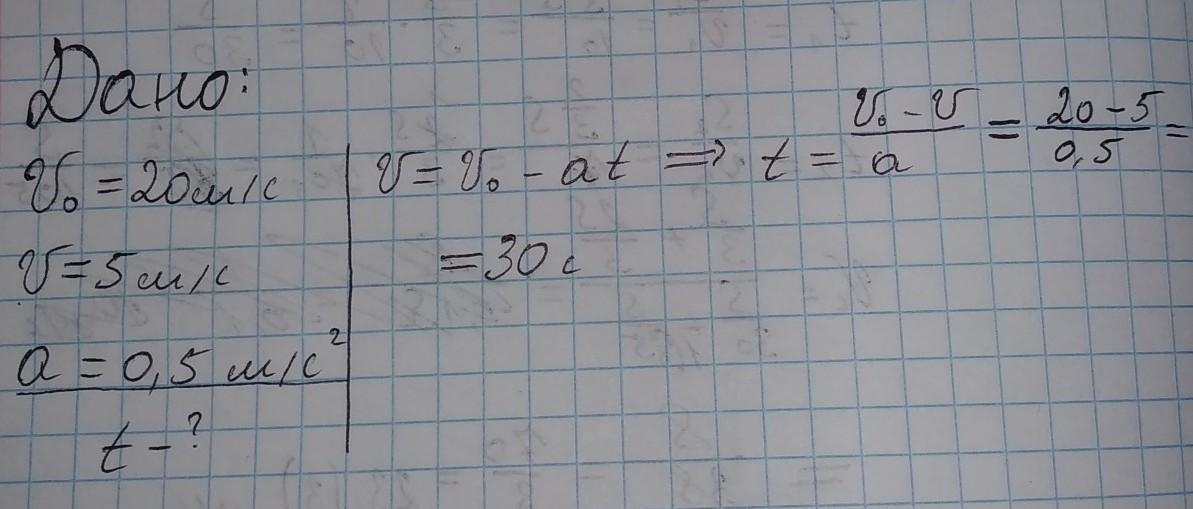 Дано:
v₀ = 20 м/с
v = 5 м/с
a = 0,5 м/с²
t - ?
v = v₀ - at ⇒ t = (v₀ - v)/a = (20 - 5)/0,5 =
= 30 с